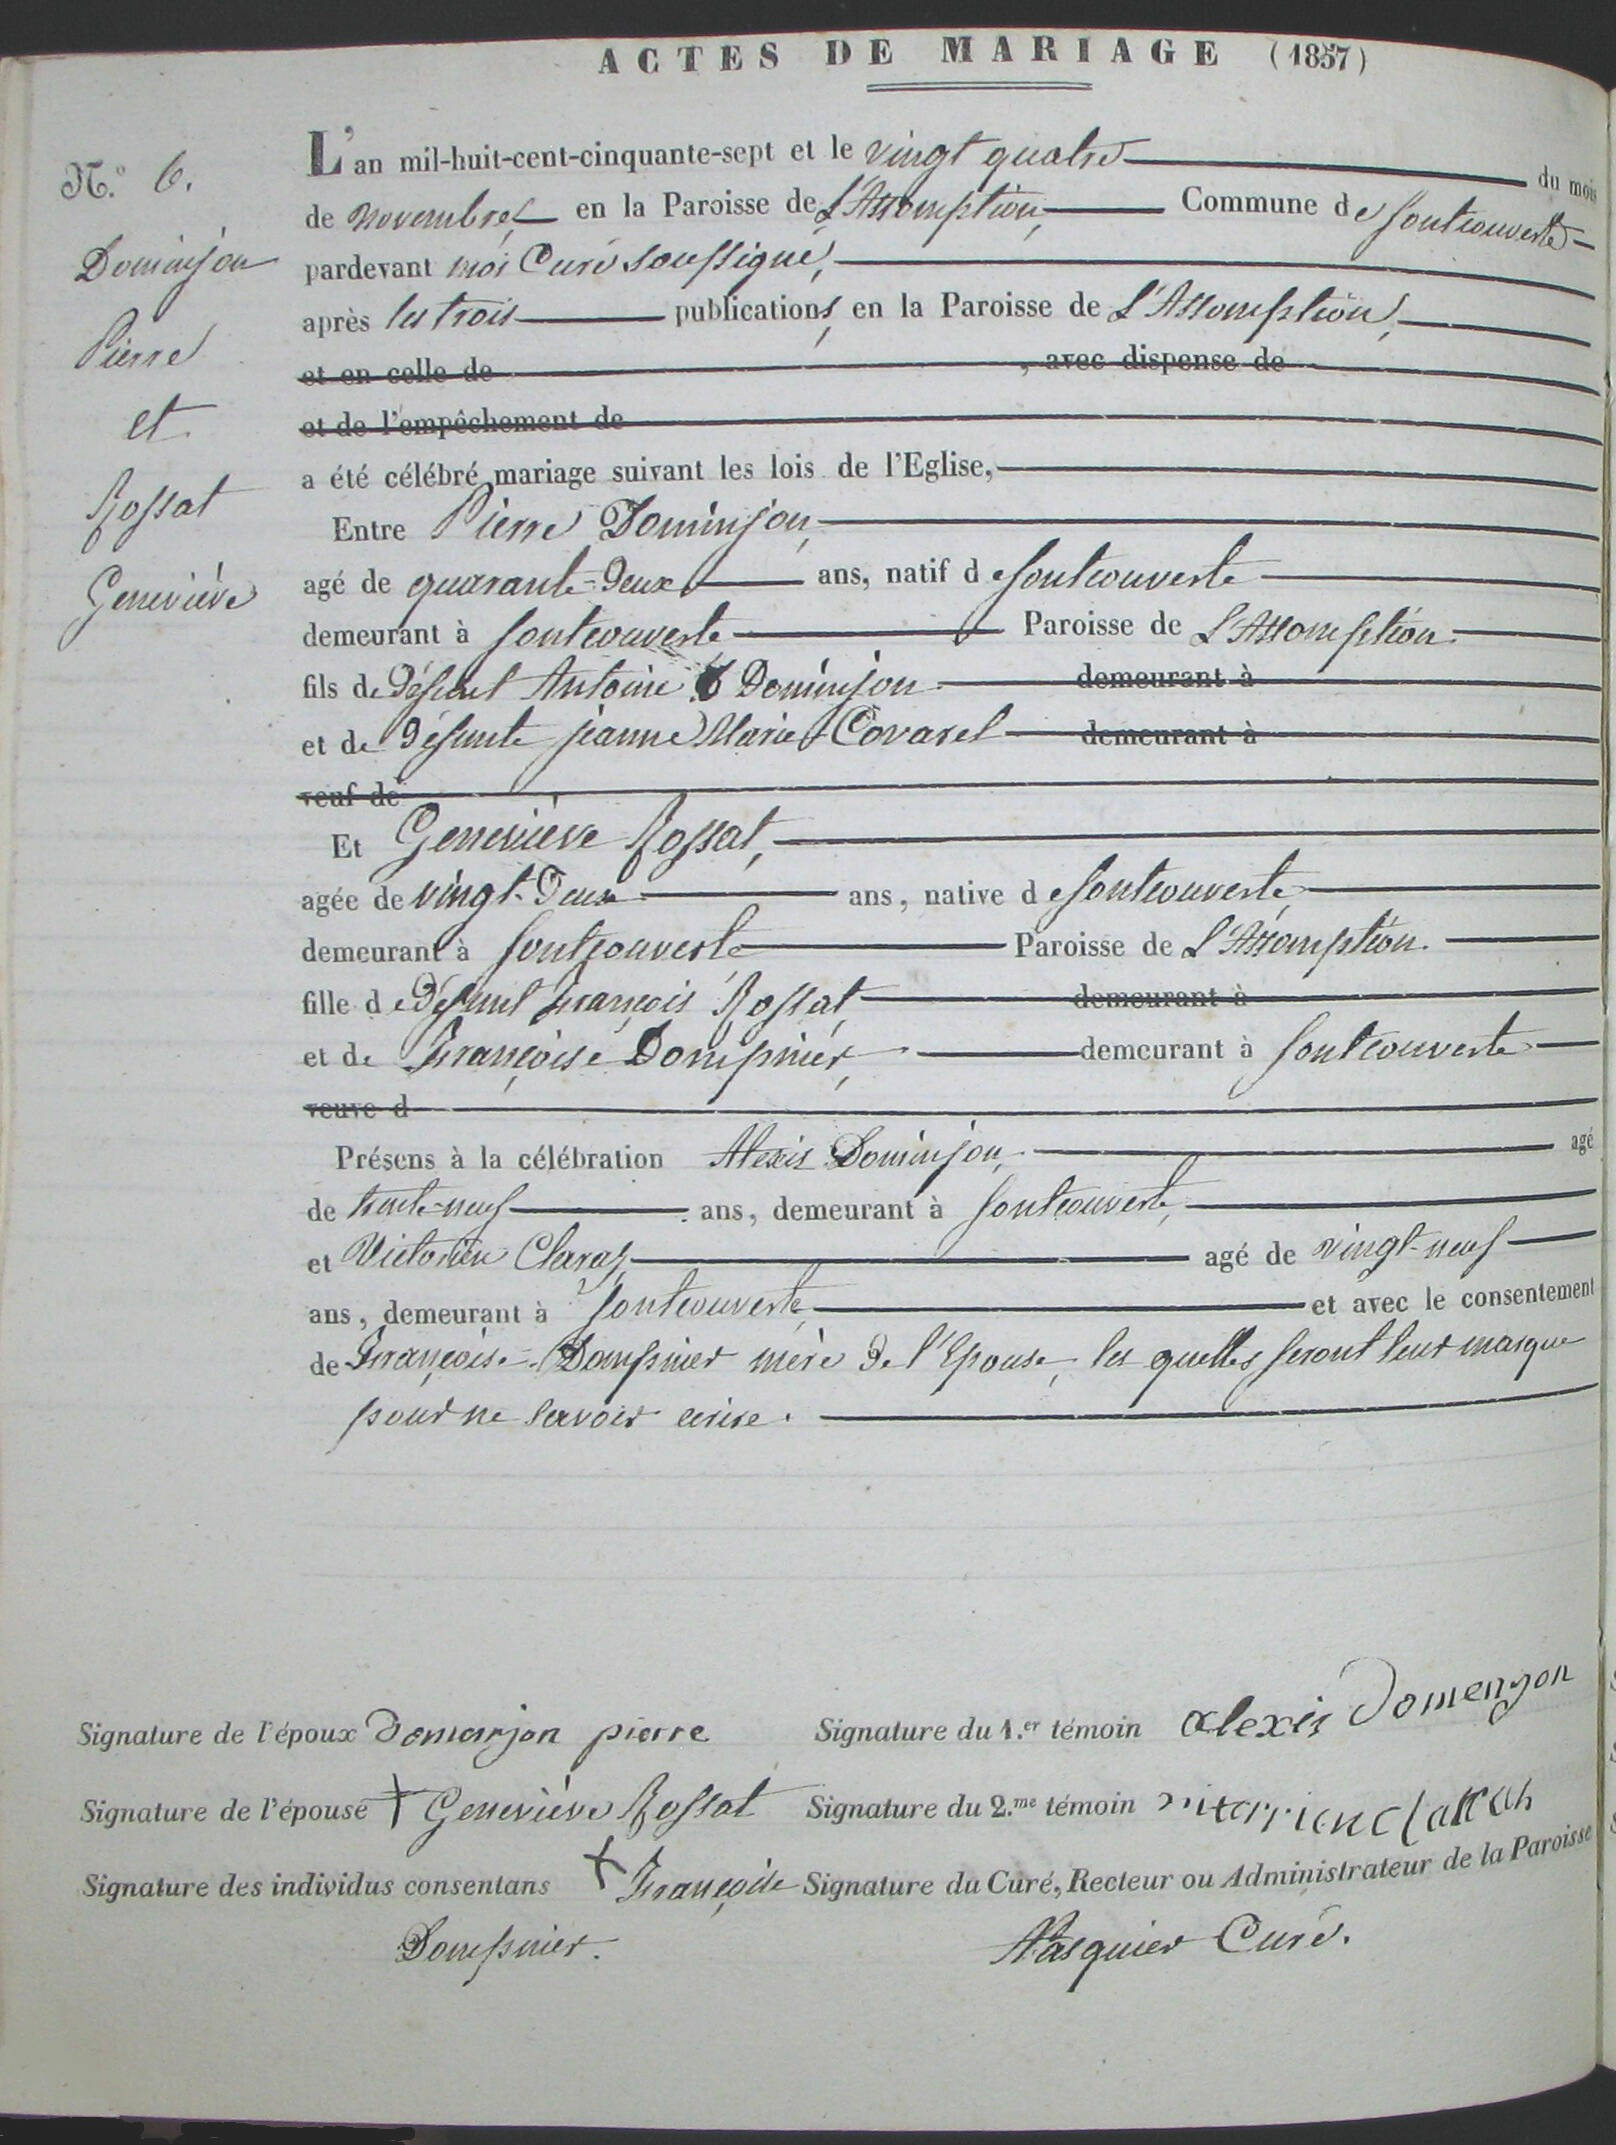 ACTES DE MARIAGE (1857)
N.° 6.
Dominjon
Pierre
et
Rossat
Geneviève
L'an mil-huit-cent-cinquante-sept et le vingt quatre du mois
de novembre, en la Paroisse de L'Assomption, Commune de fontcouverte
pardevant moi Curé soussigné,
après les trois publications, en la Paroisse de L'Assomption,
et en celle de , avec dispense de
et de l'empêchement de
a été célébré mariage suivant les lois de l'Eglise,
Entre Pierre Dominjon,
agé de quarante-deux ans, natif de fontcouverte
demeurant à fontcouverte Paroisse de L'Assomption.
fils de défunt Antoine Dominjon demeurant à
et de défunte jeanne Marie Covarel demeurant à
veuf de
Et Geneviève Rossat,
agée de vingt-deux ans, native de fontcouverte
demeurant à fontcouverte Paroisse de L'Assomption.
fille de défunt François Rossat demeurant à
et de Françoise Dompnier, demeurant à fontcouverte
veuve d
Présens à la célébration Alexis Dominjon, agé
de trente-neuf ans, demeurant à fontcouverte,
et Victorien Claraz agé de vingt-neuf
ans, demeurant à fontcouverte, et avec le consentement
de Françoise Dompnier mère de l'Epouse, les quelles feront leur marque
pour ne savoir ecrire.
Signature de l'époux domenjon pierre
Signature du 1.er témoin alexis Domenjon
Signature de l'épouse + Geneviève Rossat
Signature du 2.me témoin
Signature des individus consentans + Françoise
Dompnier.
Signature du Curé, Recteur ou Administrateur de la Paroisse
Pasquier Curé.